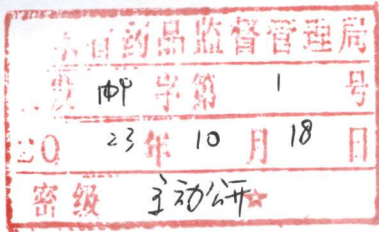 省药品监督管理局
发 字第 1 号
2023年10月18日
密级 主动公开